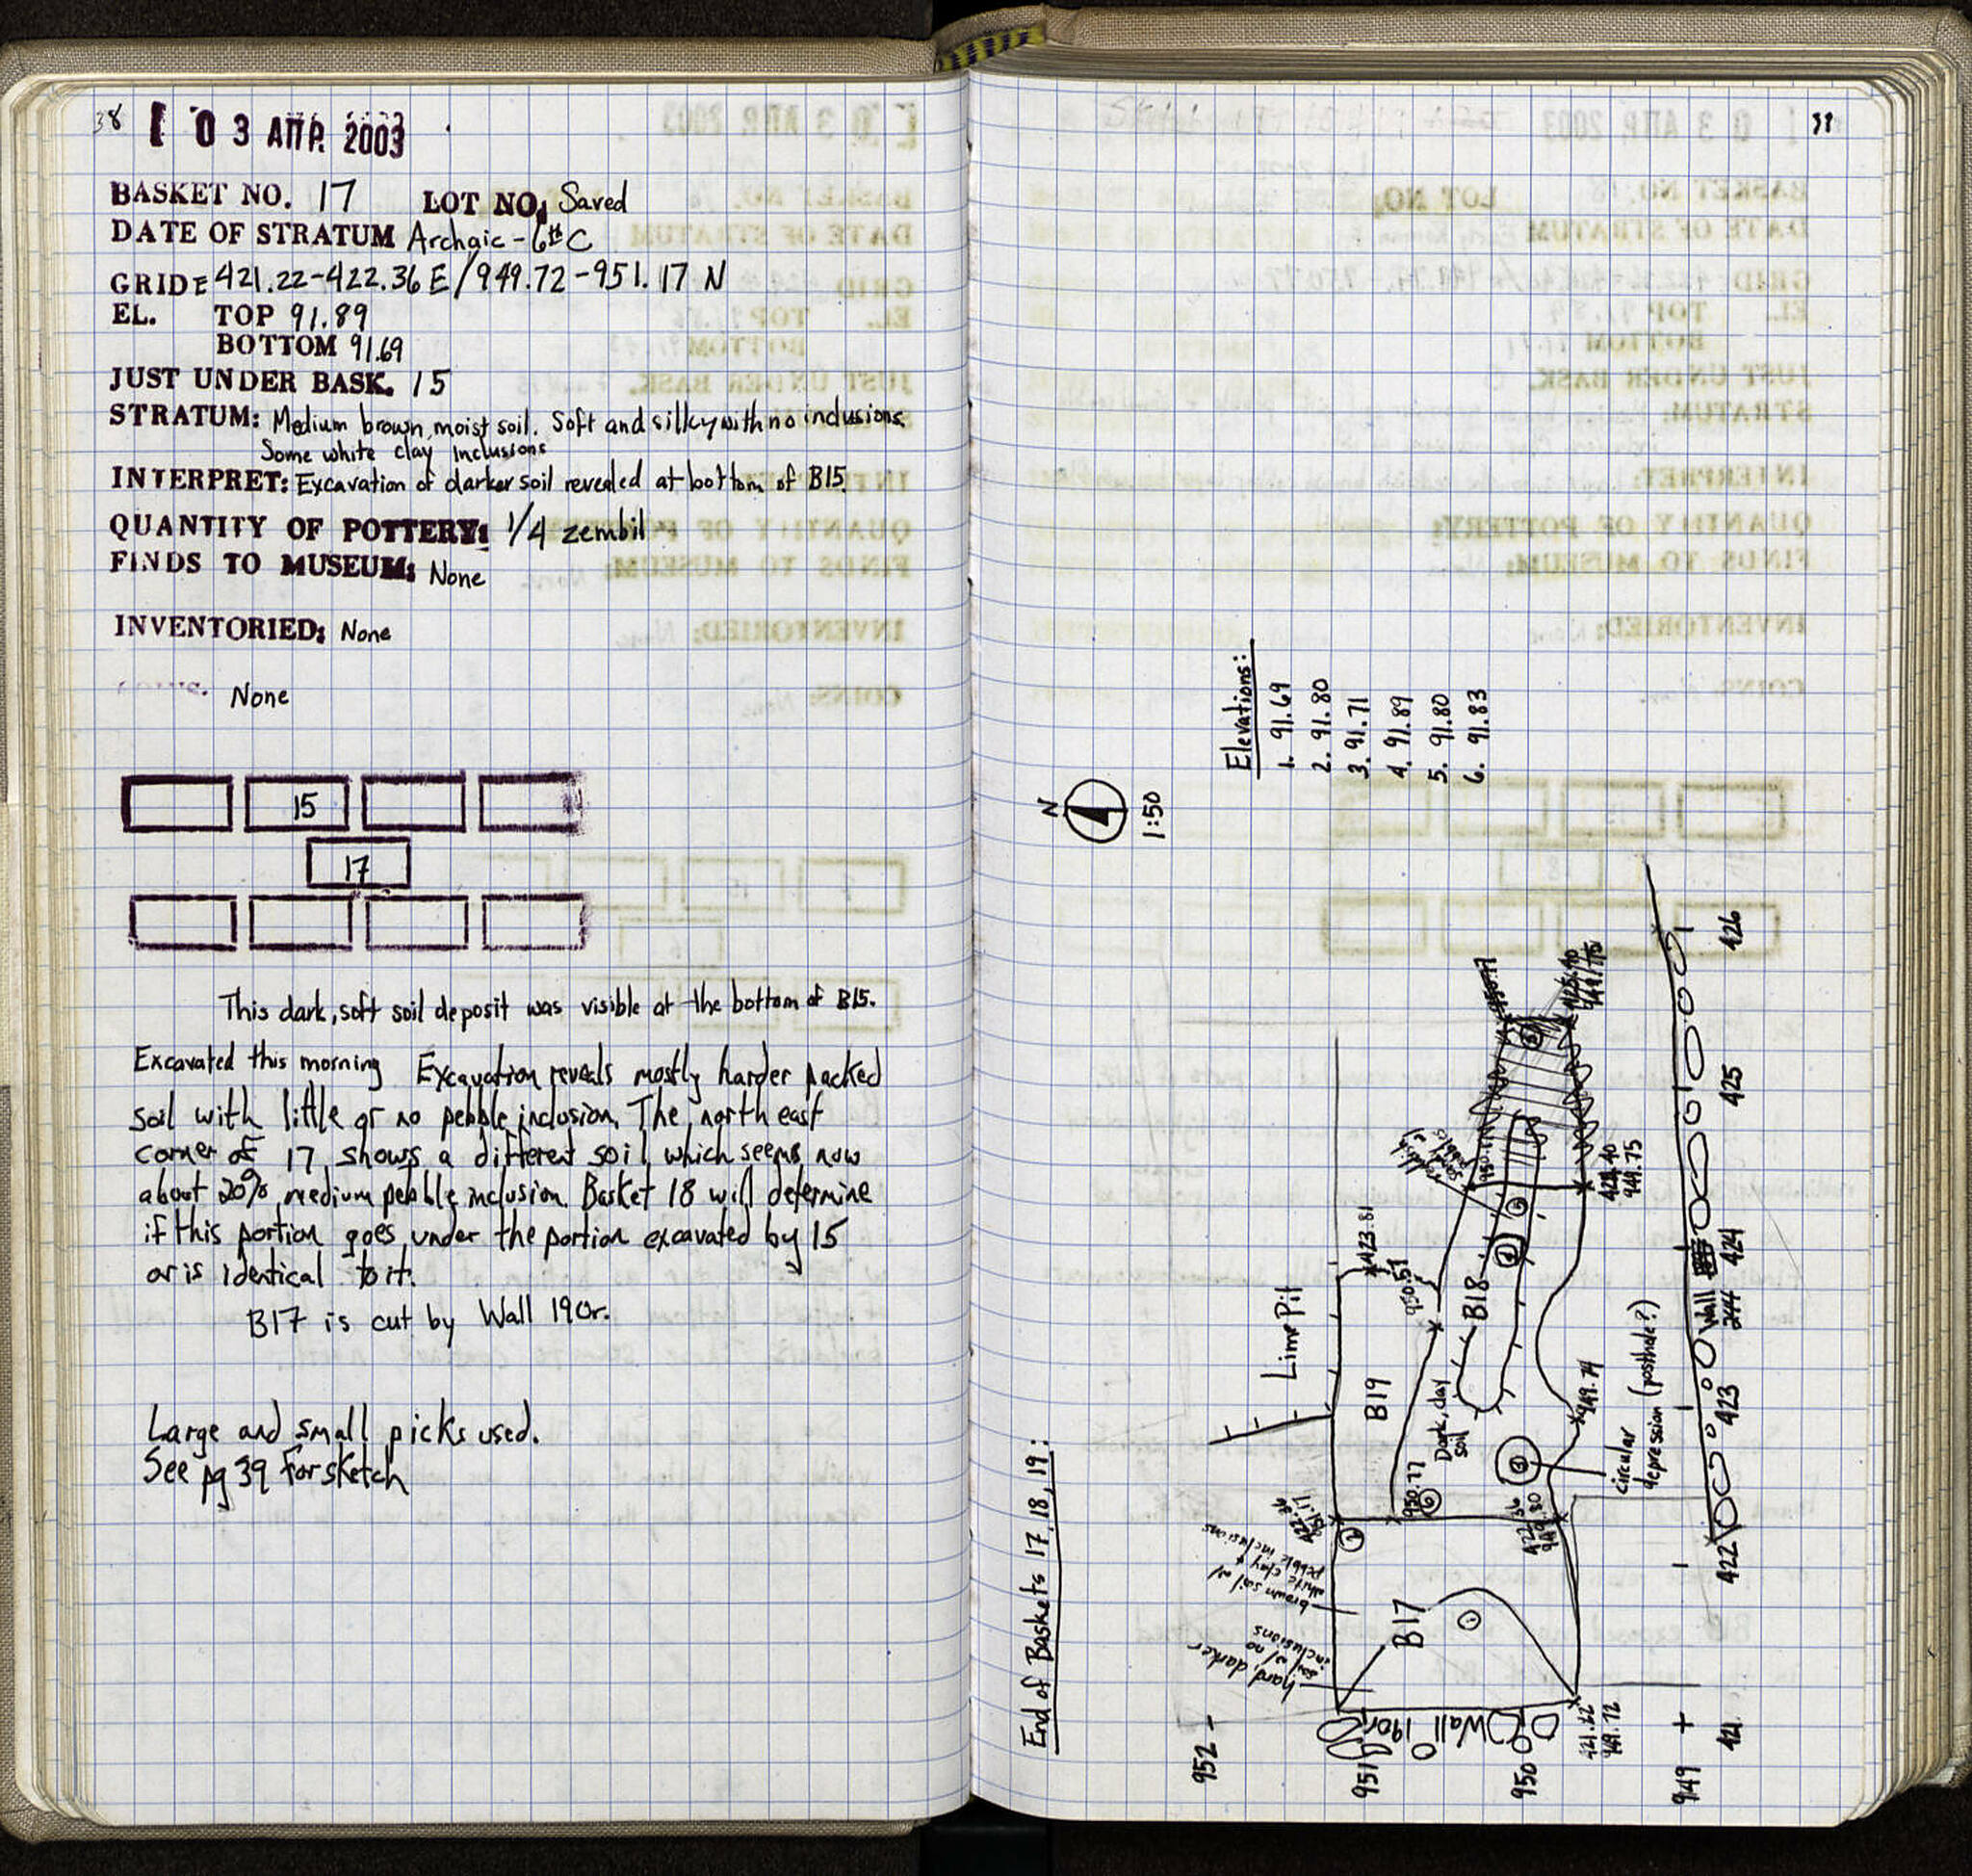 38
03 ΑΠΡ. 2003
BASKET NO. 17 LOT NO. Saved
DATE OF STRATUM Archaic - 6th C
GRID: 421.22-422.36 E / 949.72-951.17 N
EL. TOP 91.89
BOTTOM 91.69
JUST UNDER BASK. 15
STRATUM: Medium brown, moist soil. Soft and silky with no inclusions.
Some white clay inclusions
INTERPRET: Excavation of darker soil revealed at bottom of B15.
QUANTITY OF POTTERY: 1/4 zembil
FINDS TO MUSEUM: None
INVENTORIED: None
COINS: None
15
17
This dark, soft soil deposit was visible at the bottom of B15.
Excavated this morning Excavation reveals mostly harder packed
soil with little or no pebble inclusion. The north east
corner of 17 shows a different soil, which seems now
about 20% medium pebble inclusion. Basket 18 will determine
if this portion goes under the portion excavated by 15
or is identical to it.
B17 is cut by Wall 190r.
Large and small picks used.
See pg 39 for sketch
39
End of Baskets 17, 18, 19:
N
1:50
Elevations:
1. 91.69
2. 91.80
3. 91.71
4. 91.89
5. 91.80
6. 91.83
952
951
950
949
421
422
423
424
425
426
Lime Pit
B19
423.81
950.57
B18
Dark, clay
soil
950.77
6
4
3
2
1
B17
422.36
951.17
422.36
949.80
949.74
949.75
421.22
949.72
brown soil w/
white clay +
pebble inclusions
hard, darker
soil w/ no
inclusions
reddish
circular
depression (posthole?)
Wall 190r
Wall